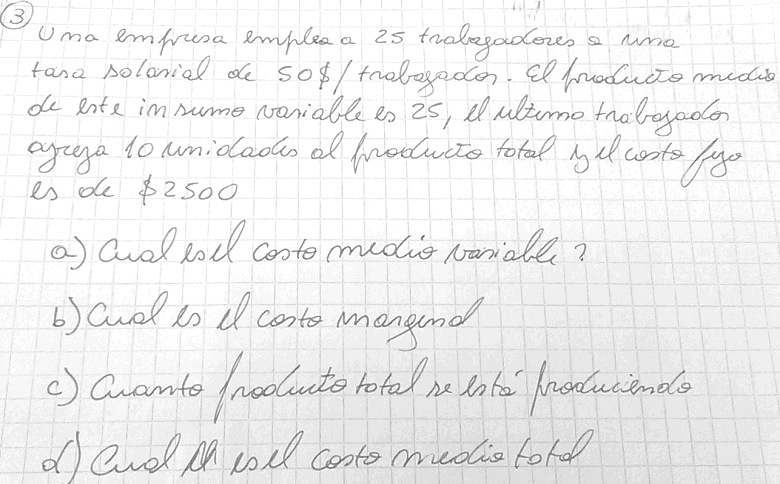 3
Una empresa emplea a 25 trabajadores a una
tasa salarial de 50$/trabajador. El producto medio
de este insumo variable es 25, el ultimo trabajador
agrega 10 unidades al producto total y el costo fijo
es de $2500
a) Cual es el costo medio variable?
b) Cual es el costo marginal
c) Cuanto producto total se está produciendo
d) Cual es el costo medio total